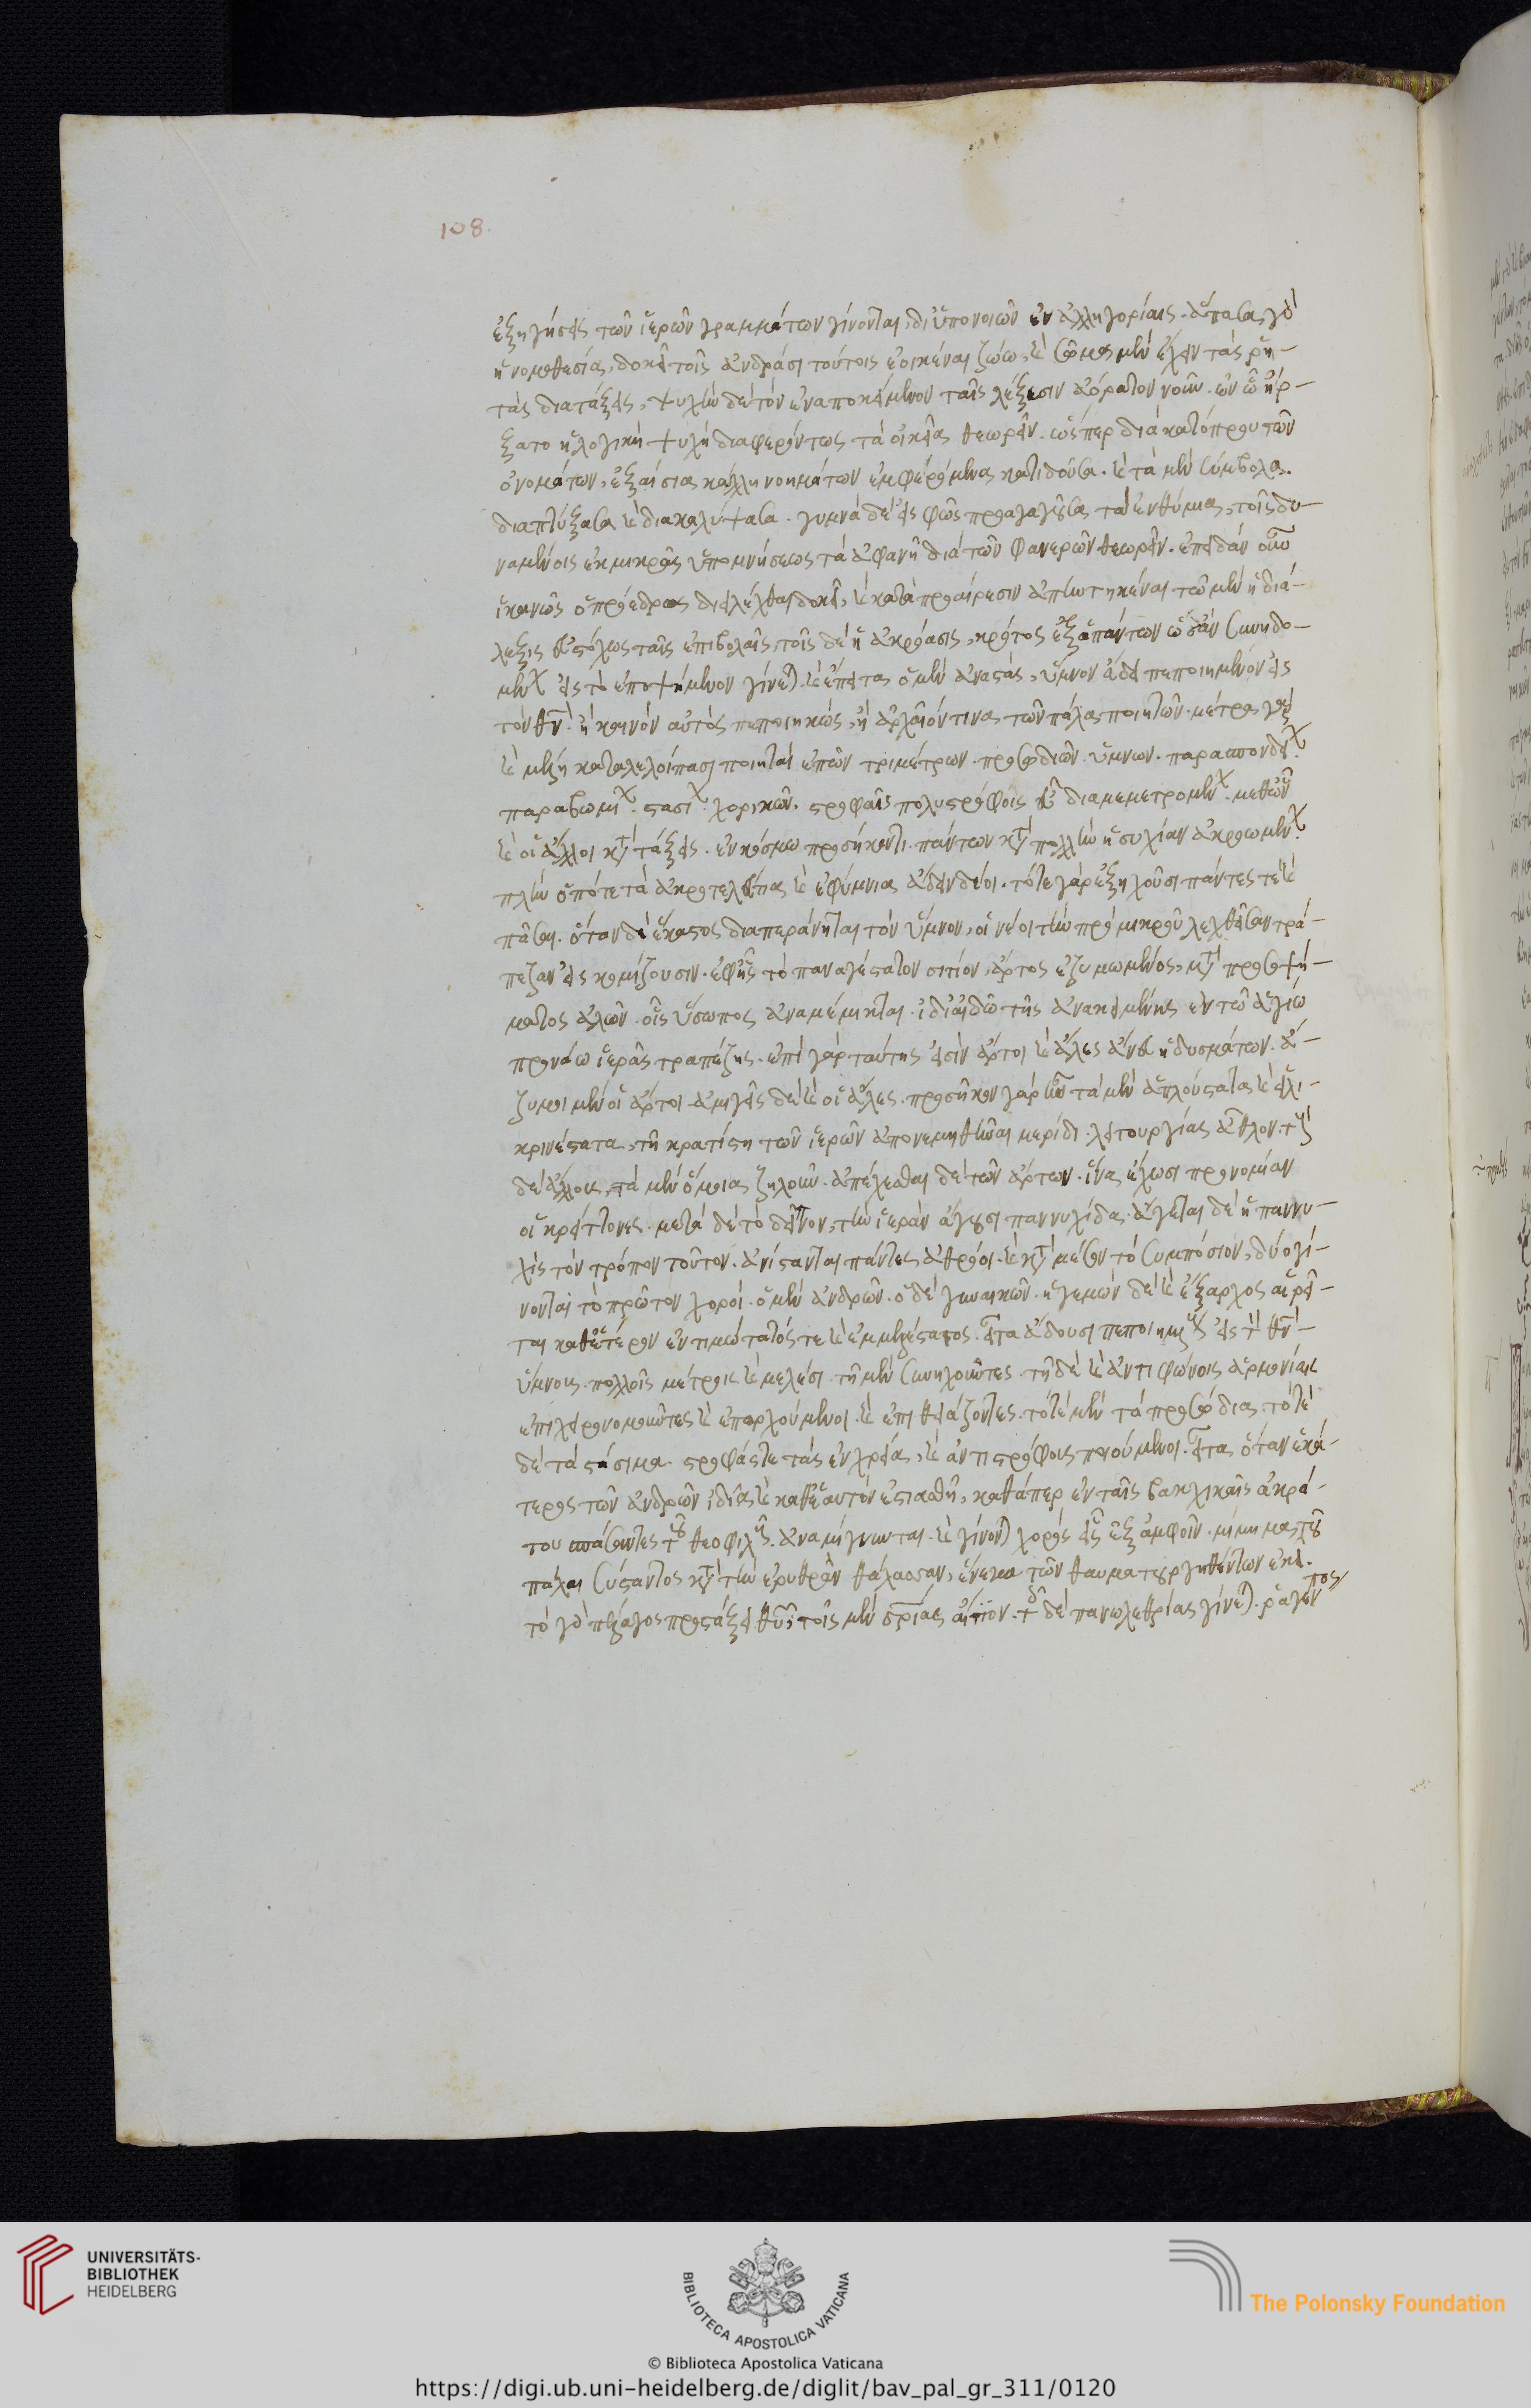 108.
ἐξηγήσεις τῶν ἱερῶν γραμμάτων γίνονται, δι' ὑπονοιῶν ἐν ἀλληγορίαις. ἅπασα γὰρ
ἡ νομοθεσία, δοκεῖ τοῖς ἀνδράσι τούτοις ἐοικέναι ζώω, καὶ σῶμα μὲν ἔχειν τὰς ῥη-
τὰς διατάξεις, ψυχὴν δὲ τὸν ἐναποκείμενον ταῖς λέξεσιν ἀόρατον νοῦν. ἐν ὧ ἤρ-
ξατο ἡ λογικὴ ψυχὴ διαφερόντως τὰ οἰκεῖα θεωρεῖν. ὥσπερ διὰ κατόπτρου τῶν
ὀνομάτων, ἐξαίσια κάλλη νοημάτων ἐμφερόμενα κατιδοῦσα. καὶ τὰ μὲν σύμβολα
διαπτύξασα καὶ διακαλύψασα. γυμνὰ δὲ εἰς φῶς προαγαγοῦσα τὰ ἐνθύμια, τοῖς δυ-
ναμένοις ἐκ μικρᾶς ὑπομνήσεως τὰ ἀφανῆ διὰ τῶν φανερῶν θεωρεῖν. ἐπειδὰν οὖν
ἱκανῶς ὁ πρόεδρος διειλέχθαι δοκεῖ, καὶ κατὰ προαίρεσιν ἀπηντηκέναι τῶ μὲν ἡ διά-
λεξις εὐστόχως ταῖς ἐπιβολαῖς, τοῖς δὲ ἡ ἀκρόασις, κρότος ἐξ ἁπάντων ὡσὰν συνηδο-
μένων εἰς τὸ ἑποψήμενον γίνεται. καὶ ἔπειτα ὁ μὲν ἀναστὰς, ὕμνον ἄδει πεποιημένον εἰς
τὸν θν. ἢ καινὸν αὐτὸς πεποιηκὼς, ἢ ἀρχαῖόν τινα τῶν πάλαι ποιητῶν. μέτρα γὰρ
καὶ μέλη καταλελοίπασι ποιηταὶ ἐπῶν τριμέτρων. προσοδιῶν. ὕμνων. παρασπονδεί.
παραβωμί. στασί. χορικῶν. στροφαῖς πολυστρόφοις εὖ διαμεμετρημένων. μεθ' ὃν
καὶ οἱ ἄλλοι κατὰ τάξεις. ἐν κόσμω προσήκοντι. πάντων κατὰ πολλὴν ἡσυχίαν ἀκροωμένων
πλὴν ὁπότε τὰ ἀκροτελεύτια καὶ ἐφύμνια ἄδειν δέοι. τότε γὰρ ἐξηχοῦσι πάντες τὲ καὶ
πᾶσαι. ὅταν δὲ ἕκαστος διαπεράνηται τὸν ὕμνον, οἱ νέοι τὴν πρὸ μικροῦ λεχθεῖσαν τρά-
πεζαν εἰσκομίζουσιν. ἐφ' ἧς τὸ παναγέστατον σιτίον, ἄρτος ἐζυμωμένος, μετὰ προσοψή-
ματος ἁλῶν. οἷς ὕσωπος ἀναμέμικται. δι' αἰδῶ τῆς ἀνακειμένης ἐν τῶ ἁγίω
προνάω ἱερᾶς τραπέζης. ἐπὶ γὰρ ταύτης εἰσὶν ἄρτοι καὶ ἅλες ἄνευ ἡδυσμάτων. ἄ-
ζυμοι μὲν οἱ ἄρτοι. ἀμιγεῖς δὲ καὶ οἱ ἅλες. προσῆκον γὰρ ἦν τὰ μὲν ἁπλούστατα καὶ εἰλι-
κρινέστατα, τῆ κρατίστη τῶν ἱερῶν ἀπονεμηθῆναι μερίδι. λειτουργίας ἆθλον. τοὺς
δὲ ἄλλους, τὰ μὲν ὅμοια ζηλοῦν. ἀπέχεσθαι δὲ τῶν ἄρτων. ἵνα ἔχωσι προνομίαν
οἱ κρείττονες. μετὰ δὲ τὸ δεῖπνον, τὴν ἱερὰν ἄγουσι παννυχίδα. ἄγεται δὲ ἡ παννυ-
χὶς τὸν τρόπον τοῦτον. ἀνίστανται πάντες ἀθρόοι. καὶ κατὰ μέσον τὸ συμπόσιον, δύο γί-
νονται τὸ πρῶτον χοροί. ὁ μὲν ἀνδρῶν. ὁ δὲ γυναικῶν. ἡγεμὼν δὲ καὶ ἔξαρχος αἱρεῖ-
ται καθ' ἑκάτερον ἐντιμώτατός τε καὶ ἐμμελέστατος. εἶτα ἄδουσι πεποιημένους εἰς τὸν θν
ὕμνους. πολλοῖς μέτροις καὶ μέλεσι. τῆ μὲν συνηχοῦντες. τῆ δὲ καὶ ἀντιφώνοις ἁρμονίαις
ἐπιχειρονομοῦντες καὶ ἐπορχούμενοι. καὶ ἐπιθειάζοντες. τότε μὲν τὰ προσόδια. τότε
δὲ τὰ στάσιμα. στροφάς τε τὰς ἐν χρεία, καὶ ἀντιστρόφους ποιούμενοι. εἶτα ὅταν ἑκά-
τερος τῶν ἀνδρῶν ἰδία καὶ καθ' ἑαυτὸν ἑστιαθῆ, καθάπερ ἐν ταῖς βακχικαῖς ἀκρά-
του σπάσαντες τοῦ θεοφιλοῦς. ἀναμίγνυνται. καὶ γίνονται χορὸς εἷς ἐξ ἀμφοῖν. μίμημα τοῦ
πάλαι συστάντος κατὰ τὴν ἐρυθρὰν θάλασσαν, ἕνεκα τῶν θαυματουργηθέντων ἐκεῖ.
τὸ γὰρ πέλαγος προστάξει θυ, τοῖς μὲν σριας αἴτιον. τοῖς δὲ πανωλεθρίας γίνεται. ῥαγέν
τος
UNIVERSITÄTS-
BIBLIOTHEK
HEIDELBERG
BIBLIOTECA APOSTOLICA VATICANA
The Polonsky Foundation
© Biblioteca Apostolica Vaticana
https://digi.ub.uni-heidelberg.de/diglit/bav_pal_gr_311/0120